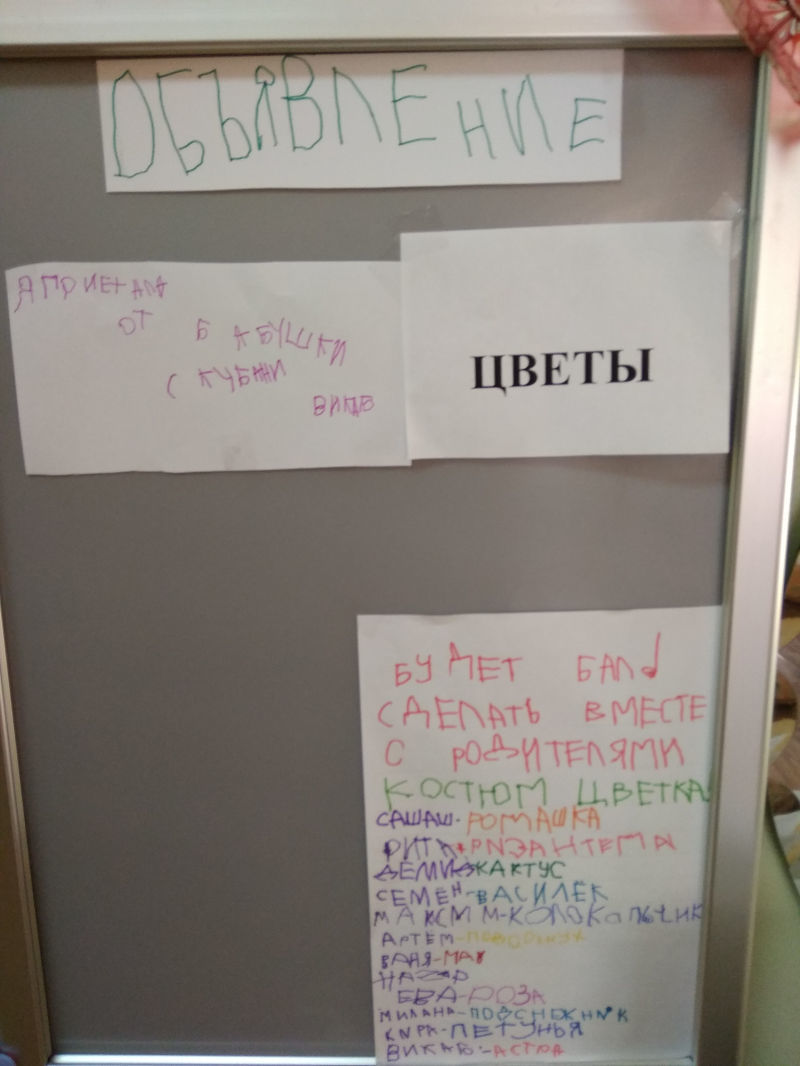 ОБЪЯВЛЕНИЕ
Я ПРИЕХАЛА
ОТ БАБУШКИ
С
ВИКАБ
ЦВЕТЫ
БУДЕТ БАЛ
СДЕЛАТЬ ВМЕСТЕ
С РОДИТЕЛЯМИ
КОСТЮМ ЦВЕТКА!
САШАШ-РОМАШКА
РИТА
КАКТУС
СЕМЕН-ВАСИЛЕК
МАКСИМ-КОЛОКАЛЬЧИК
АРТЕМ-
ВАНЯ-МАК
НАЗАР
ЕВА-РОЗА
МИЛАНА-ПОДСНЕЖНИК
КИРА-ПЕТУНЬЯ
ВИКАБ-АСТРА